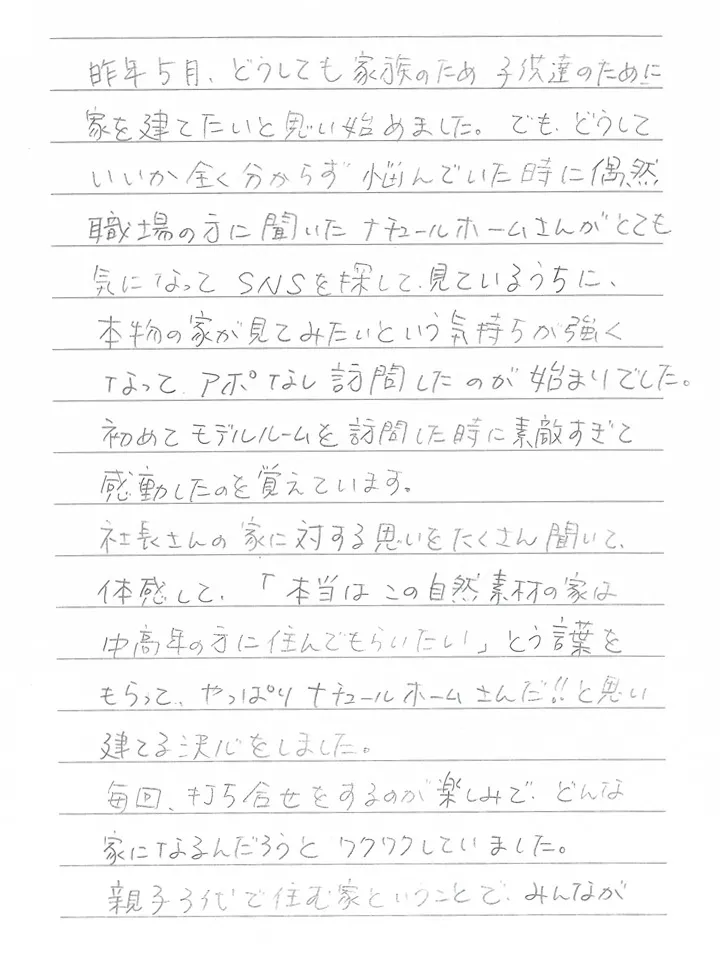 昨年5月、どうしても家族のため 子供達のために
家を建てたいと思い始めました。でも、どうして
いいか全く分からず 悩んでいた時に偶然
職場の方に聞いたナチュールホームさんがとても
気になって SNSを探して、見ているうちに、
本物の家が見てみたいという気持ちが強く
なって、アポなし訪問したのが始まりでした。
初めてモデルルームを訪問した時に素敵すぎて
感動したのを覚えています。
社長さんの家に対する思いをたくさん聞いて、
体感して、「本当はこの自然素材の家は
中高年の方に住んでもらいたい」とう言葉を
もらって、やっぱりナチュールホームさんだ!!と思い
建てる決心をしました。
毎回、打ち合せをするのが楽しみで、どんな
家になるんだろうとワクワクしていました。
親子3代で住む家ということで、みんなが